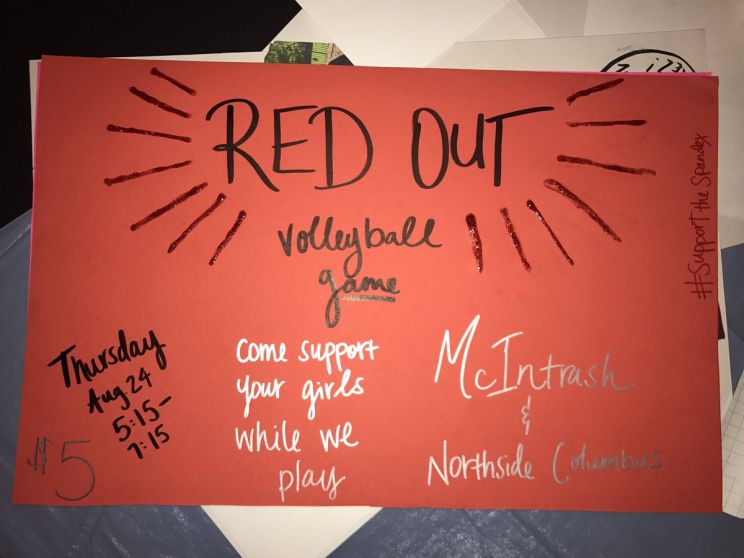 RED OUT
volleyball
game
#Support the Spandex
Thursday
Aug 24
5:15-
7:15
$5
come support
your girls
while we
play
McIntrash
&
Northside Columbus